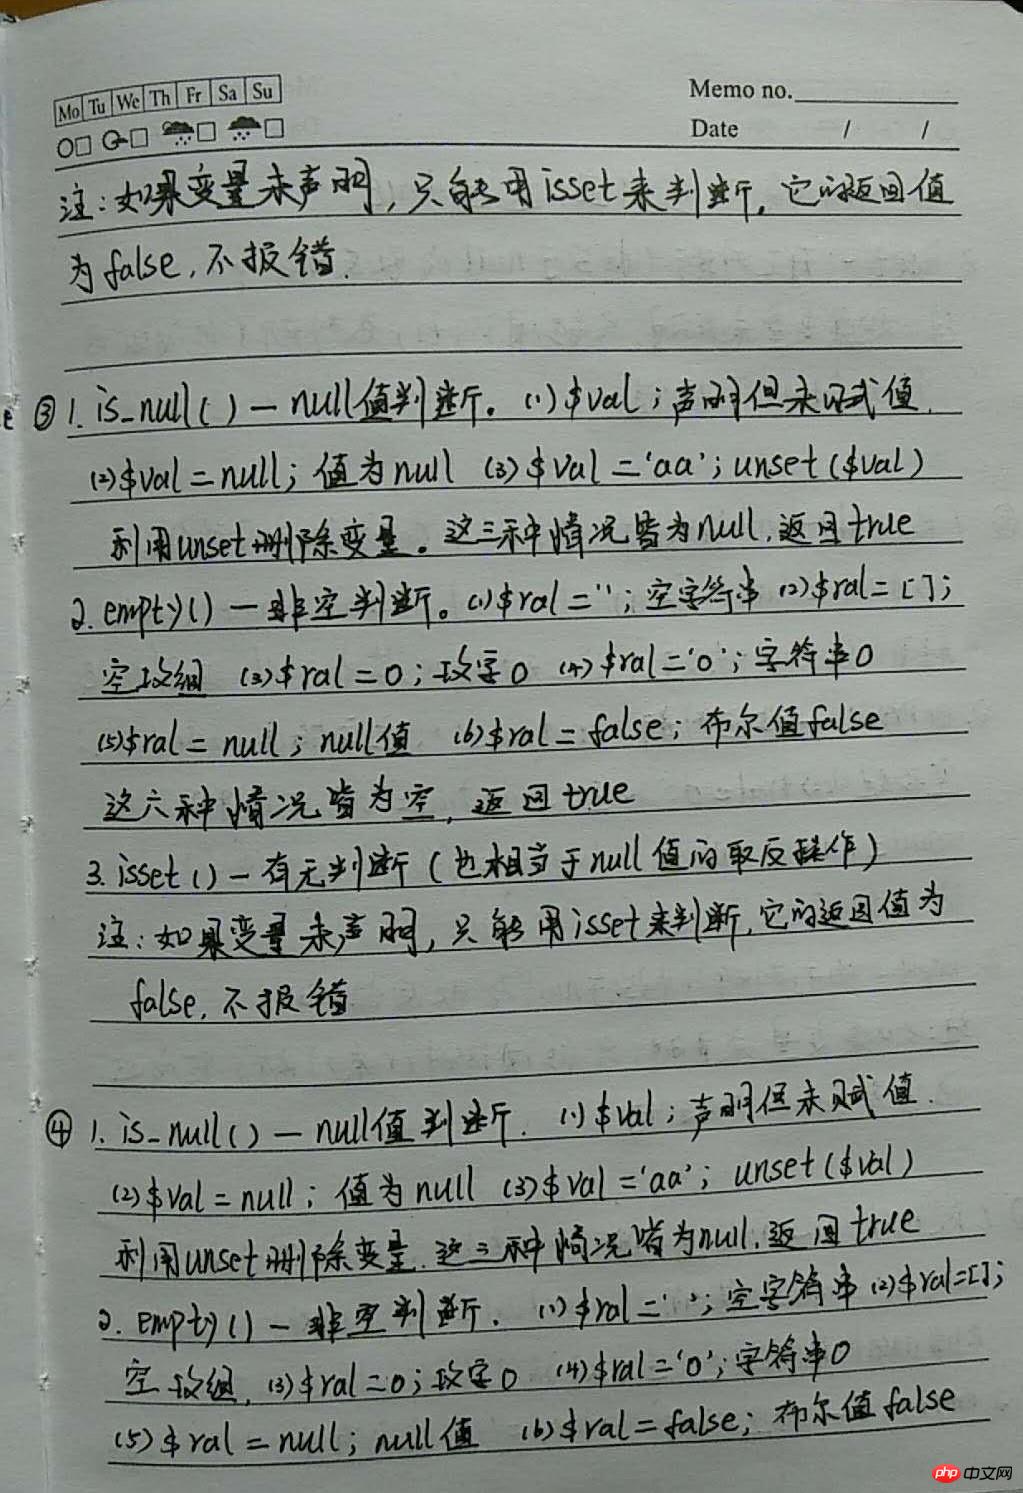 Mo Tu We Th Fr Sa Su
Memo no.
Date / /
注:如果变量未声明,只能用isset来判断,它的返回值
为false,不报错.
③ 1. is_null() — null值判断。(1)$val;声明但未赋值.
(2)$val=null;值为null (3)$val='aa';unset($val)
利用unset删除变量。这三种情况皆为null,返回true
2. empty() — 非空判断。(1)$ral='';空字符串 (2)$ral=[];
空数组 (3)$ral=0;数字0 (4)$ral='0';字符串0
(5)$ral=null;null值 (6)$ral=false;布尔值false
这六种情况皆为空,返回true
3. isset() — 有无判断(也相当于null值的取反操作)
注:如果变量未声明,只能用isset来判断,它的返回值为
false,不报错
④ 1. is_null() — null值判断. (1)$val;声明但未赋值.
(2)$val=null;值为null (3)$val='aa';unset($val)
利用unset删除变量.这三种情况皆为null.返回true
2. empty() — 非空判断. (1)$ral='';空字符串 (2)$ral=[];
空数组,(3)$ral=0;数字0 (4)$ral='0';字符串0
(5)$ral=null;null值 (6)$ral=false;布尔值false
php中文网